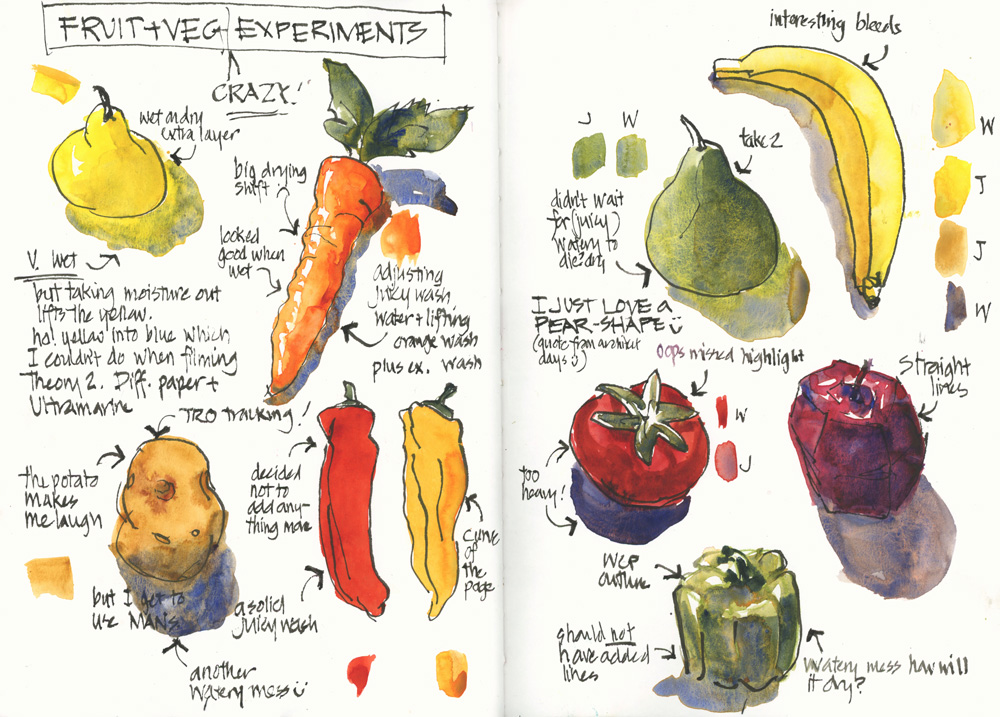 FRUIT+VEG EXPERIMENTS
CRAZY!
wet on dry
extra layer
V. wet
but taking moisture out
lifts the yellow.
ha! yellow into blue which
I couldn't do when filming
Theory 2. Diff. paper +
Ultramarine
big drying
shift
looked
good when
wet
adjusting
juicy wash,
water + lifting
orange wash
plus ex. wash
TRO tracking!
the potato
makes
me laugh
but I get to
use MANS.
another
watery mess
decided
not to
add any-
thing more
a solid
juicy wash
curve
of
the
page
interesting bleeds
W
J
J
W
J W
take 2
didn't wait
for (juicy)
watery to
dry
I JUST LOVE A
PEAR-SHAPE
(quote from architect
days)
oops missed highlight
W
J
too
heavy!
Straight
lines
WCP
outline
should not
have added
lines
Watery mess how will
it dry?